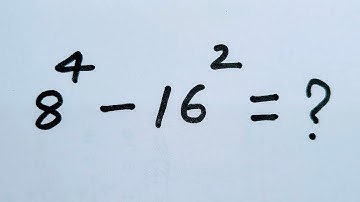 8⁴ − 16² = ?